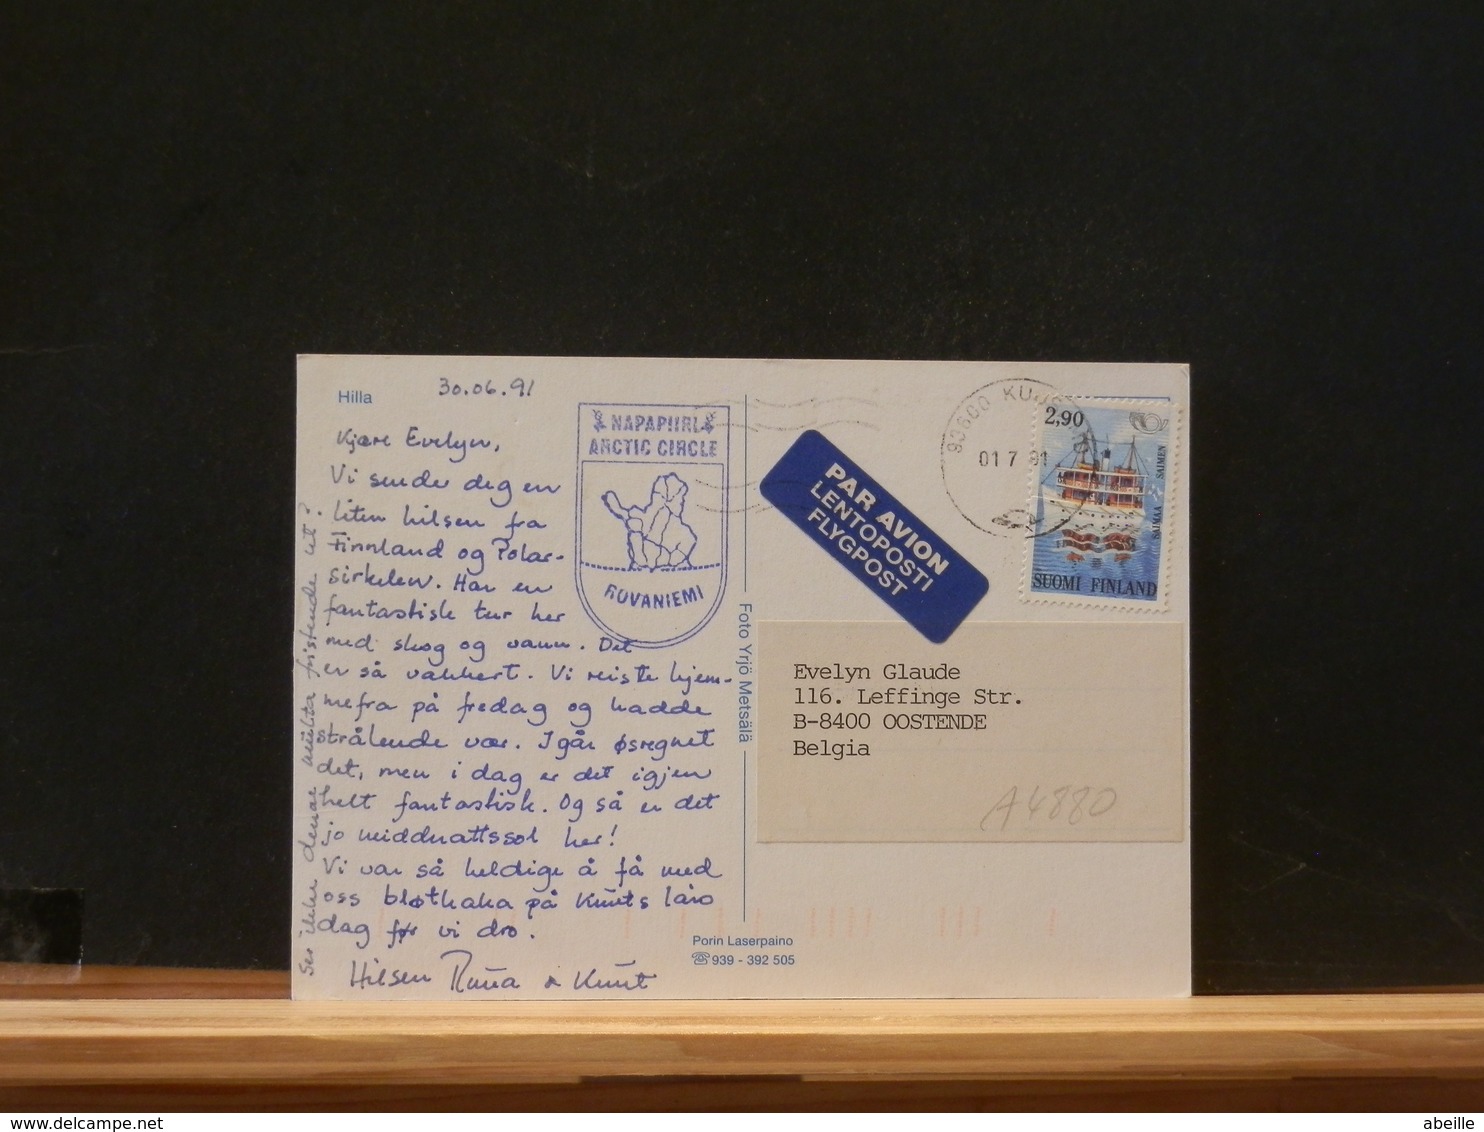 Hilla
30.06.91
Kjære Evelyn,
Vi sender deg en
liten hilsen fra
Finnland og Polar-
sirkelen. Har en
fantastisk tur her
med skog og vann. Det
er så vakkert. Vi reiste hjem-
mefra på fredag og hadde
strålende vær. I går øsregnet
det, men i dag er det igjen
helt fantastisk. Og så er det
jo midnattssol her!
Vi var så heldige å få med
oss bløtkaka på Knuts
dag før vi dro.
Hilsen Runa & Knut
Ser ikke denne multa fristende ut?
NAPAPIIRI
ARCTIC CIRCLE
ROVANIEMI
Foto Yrjö Metsälä
Porin Laserpaino
☎ 939 - 392 505
PAR AVION
LENTOPOSTI
FLYGPOST
93600
01 7 91
2,90
SAIMAA SAIMEN
SUOMI FINLAND
Evelyn Glaude
116. Leffinge Str.
B-8400 OOSTENDE
Belgia
A4880
delcampe.net
abeille